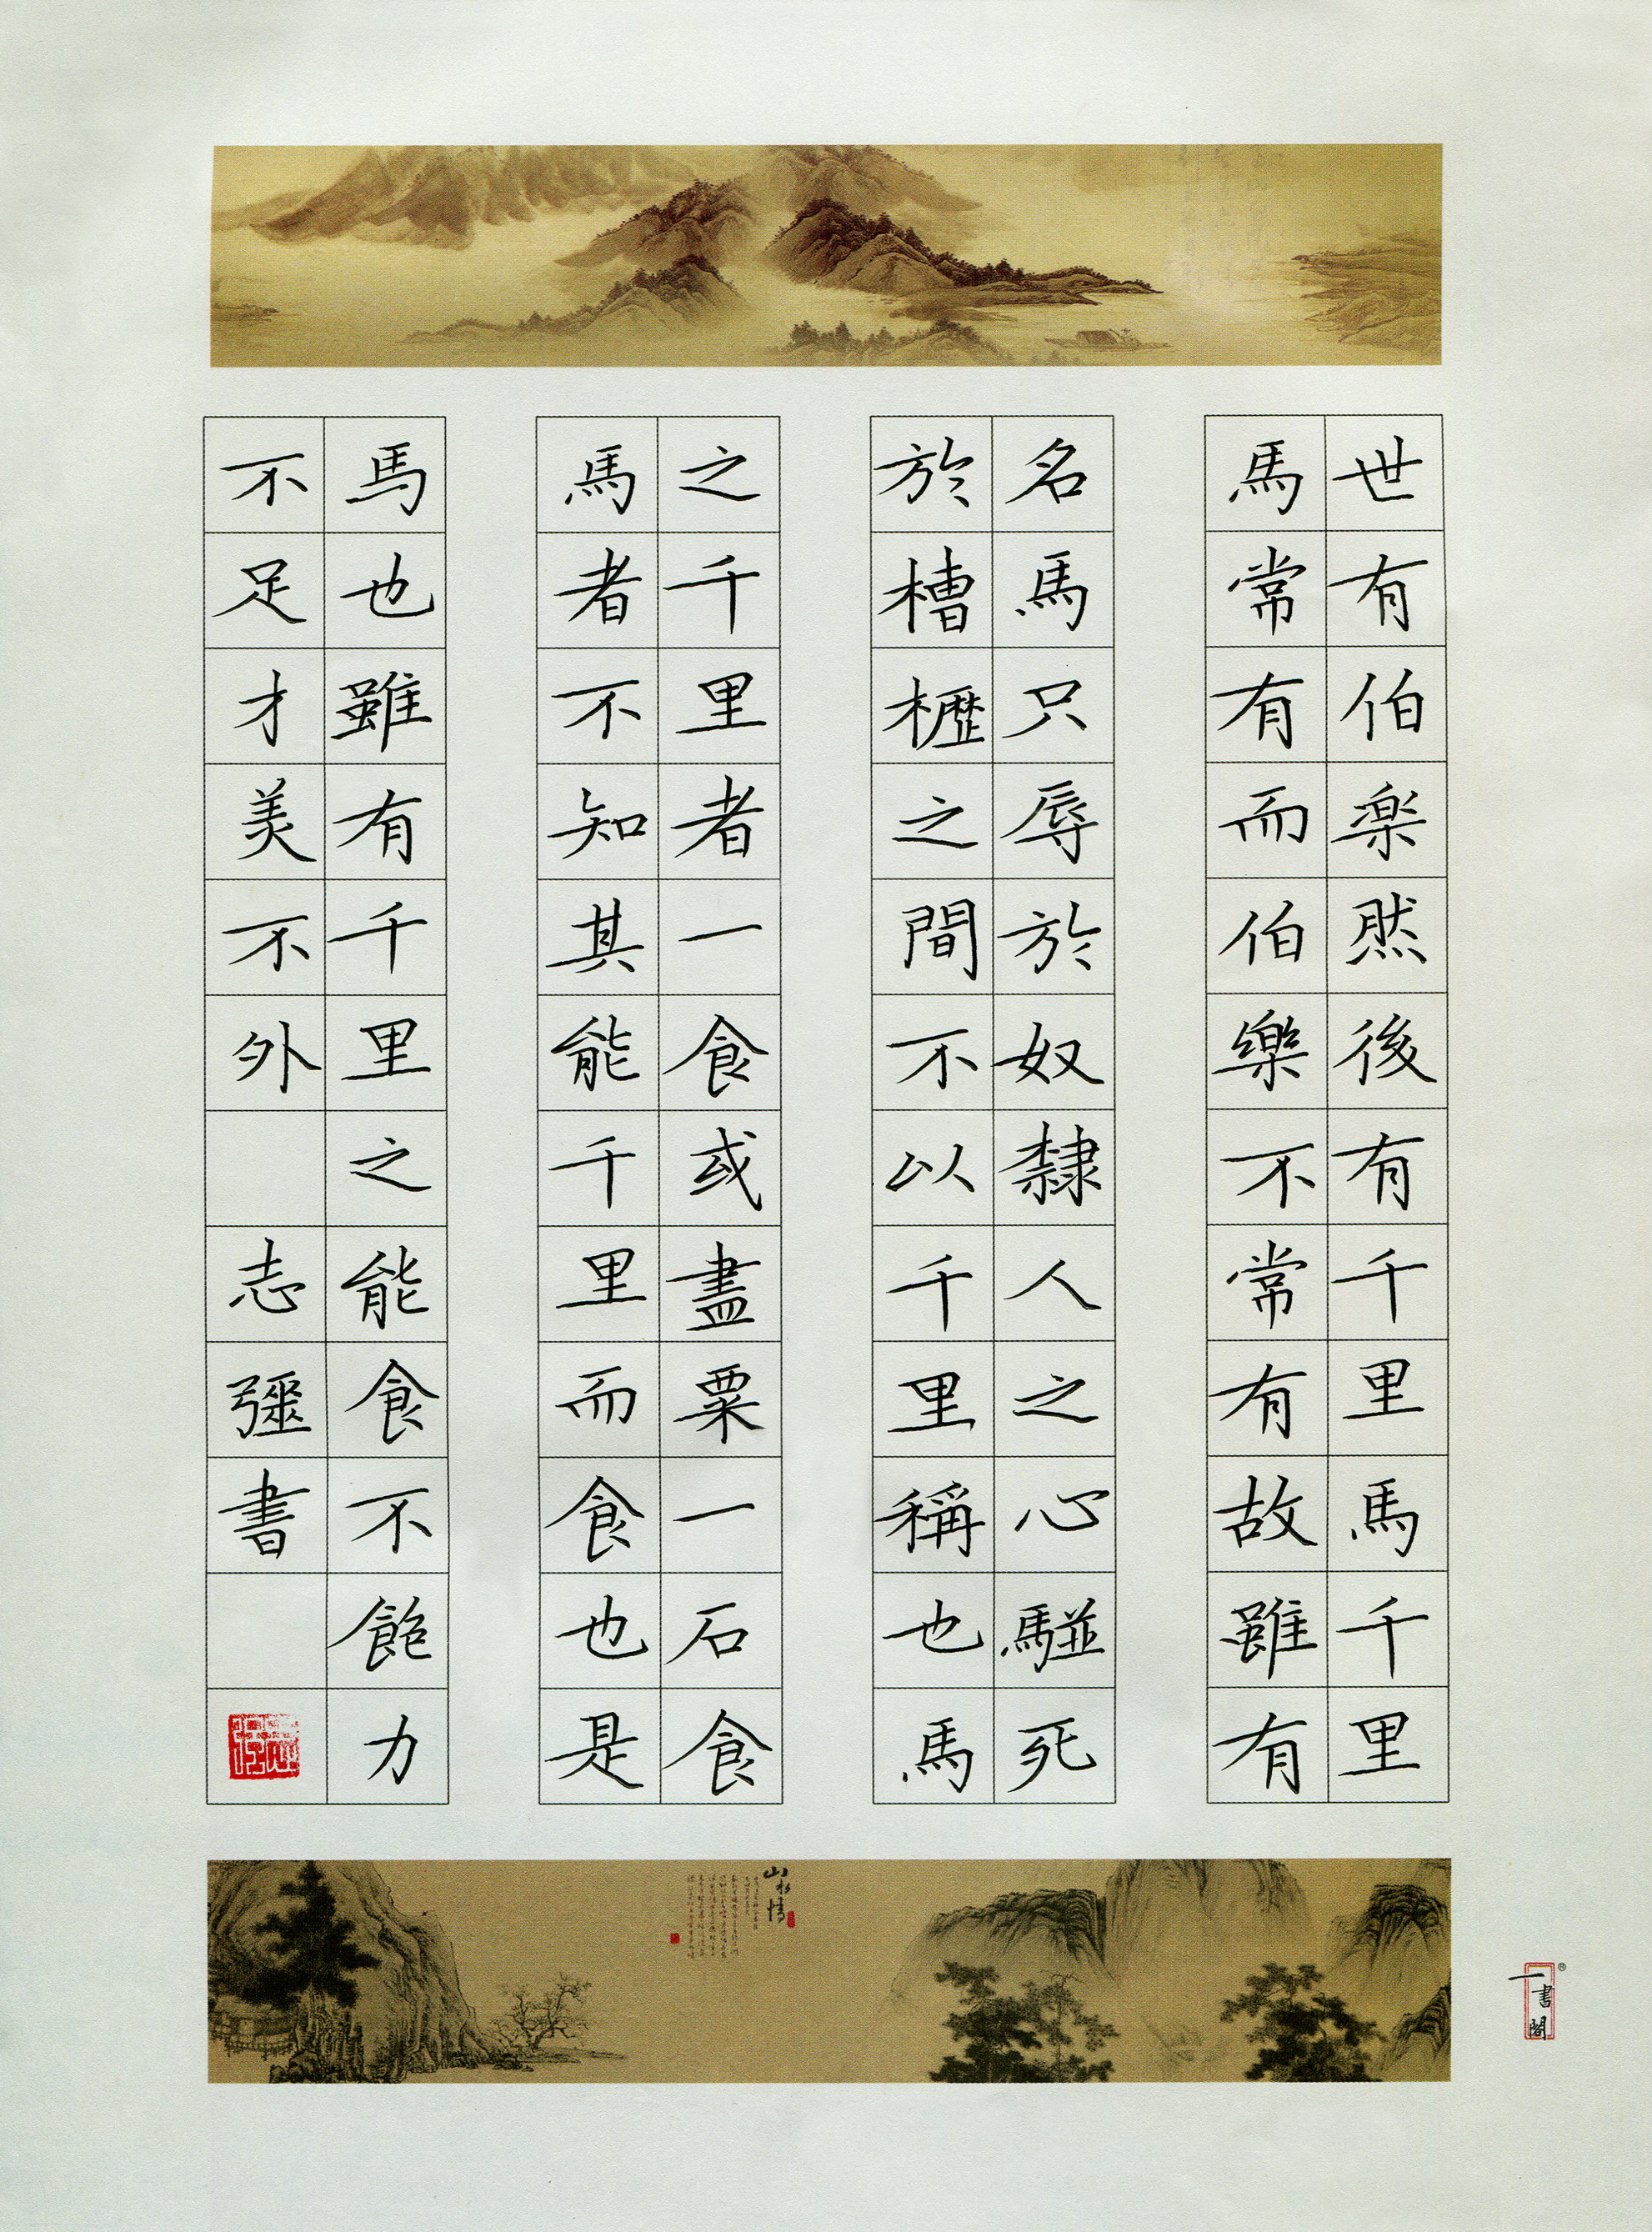 世有伯楽然後有千里馬千里
馬常有而伯樂不常有故雖有
名馬只辱於奴隸人之心駢死
於槽櫪之間不以千里稱也馬
之千里者一食或盡粟一石食
馬者不知其能千里而食也是
馬也雖有千里之能食不飽力
不足才美不外 志彊書
山水情
一書閣